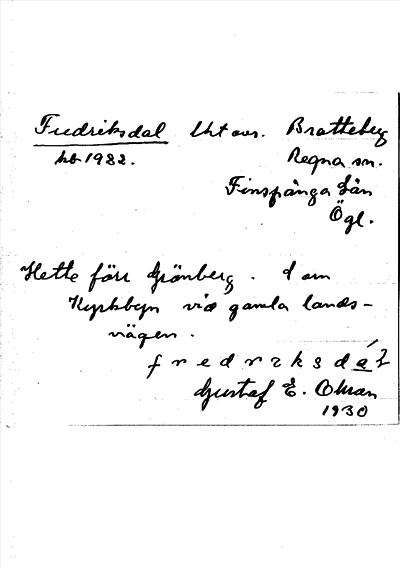 Fredriksdal lht avs. Bratteberg
hb 1982. Regna sn.
Finspånga län
Ögl.
Hette förr Grönberg. I om
Kyrkbyn vid gamla lands-
vägen.
fredrɪksdál
Gustaf E. Ohson
1930